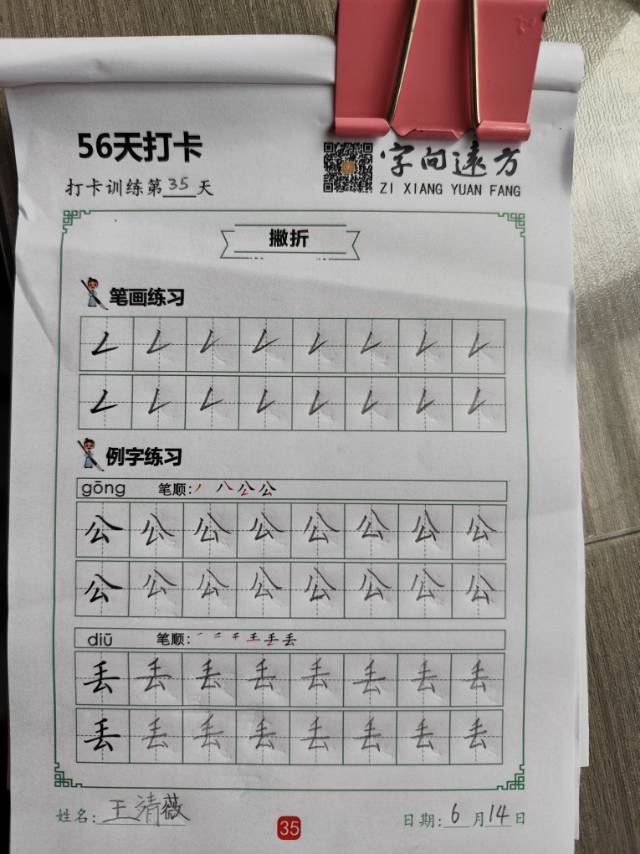 56天打卡
打卡训练第35天
字向远方
ZI XIANG YUAN FANG
撇折
笔画练习
例字练习
gōng 笔顺:丿 八 公 公
公 公 公 公 公 公 公 公
公 公 公 公 公 公 公 公
diū 笔顺:一 二 千 王 丢 丢
丢 丢 丢 丢 丢 丢 丢 丢
丢 丢 丢 丢 丢 丢 丢 丢
姓名:王清薇
35
日期:6月14日